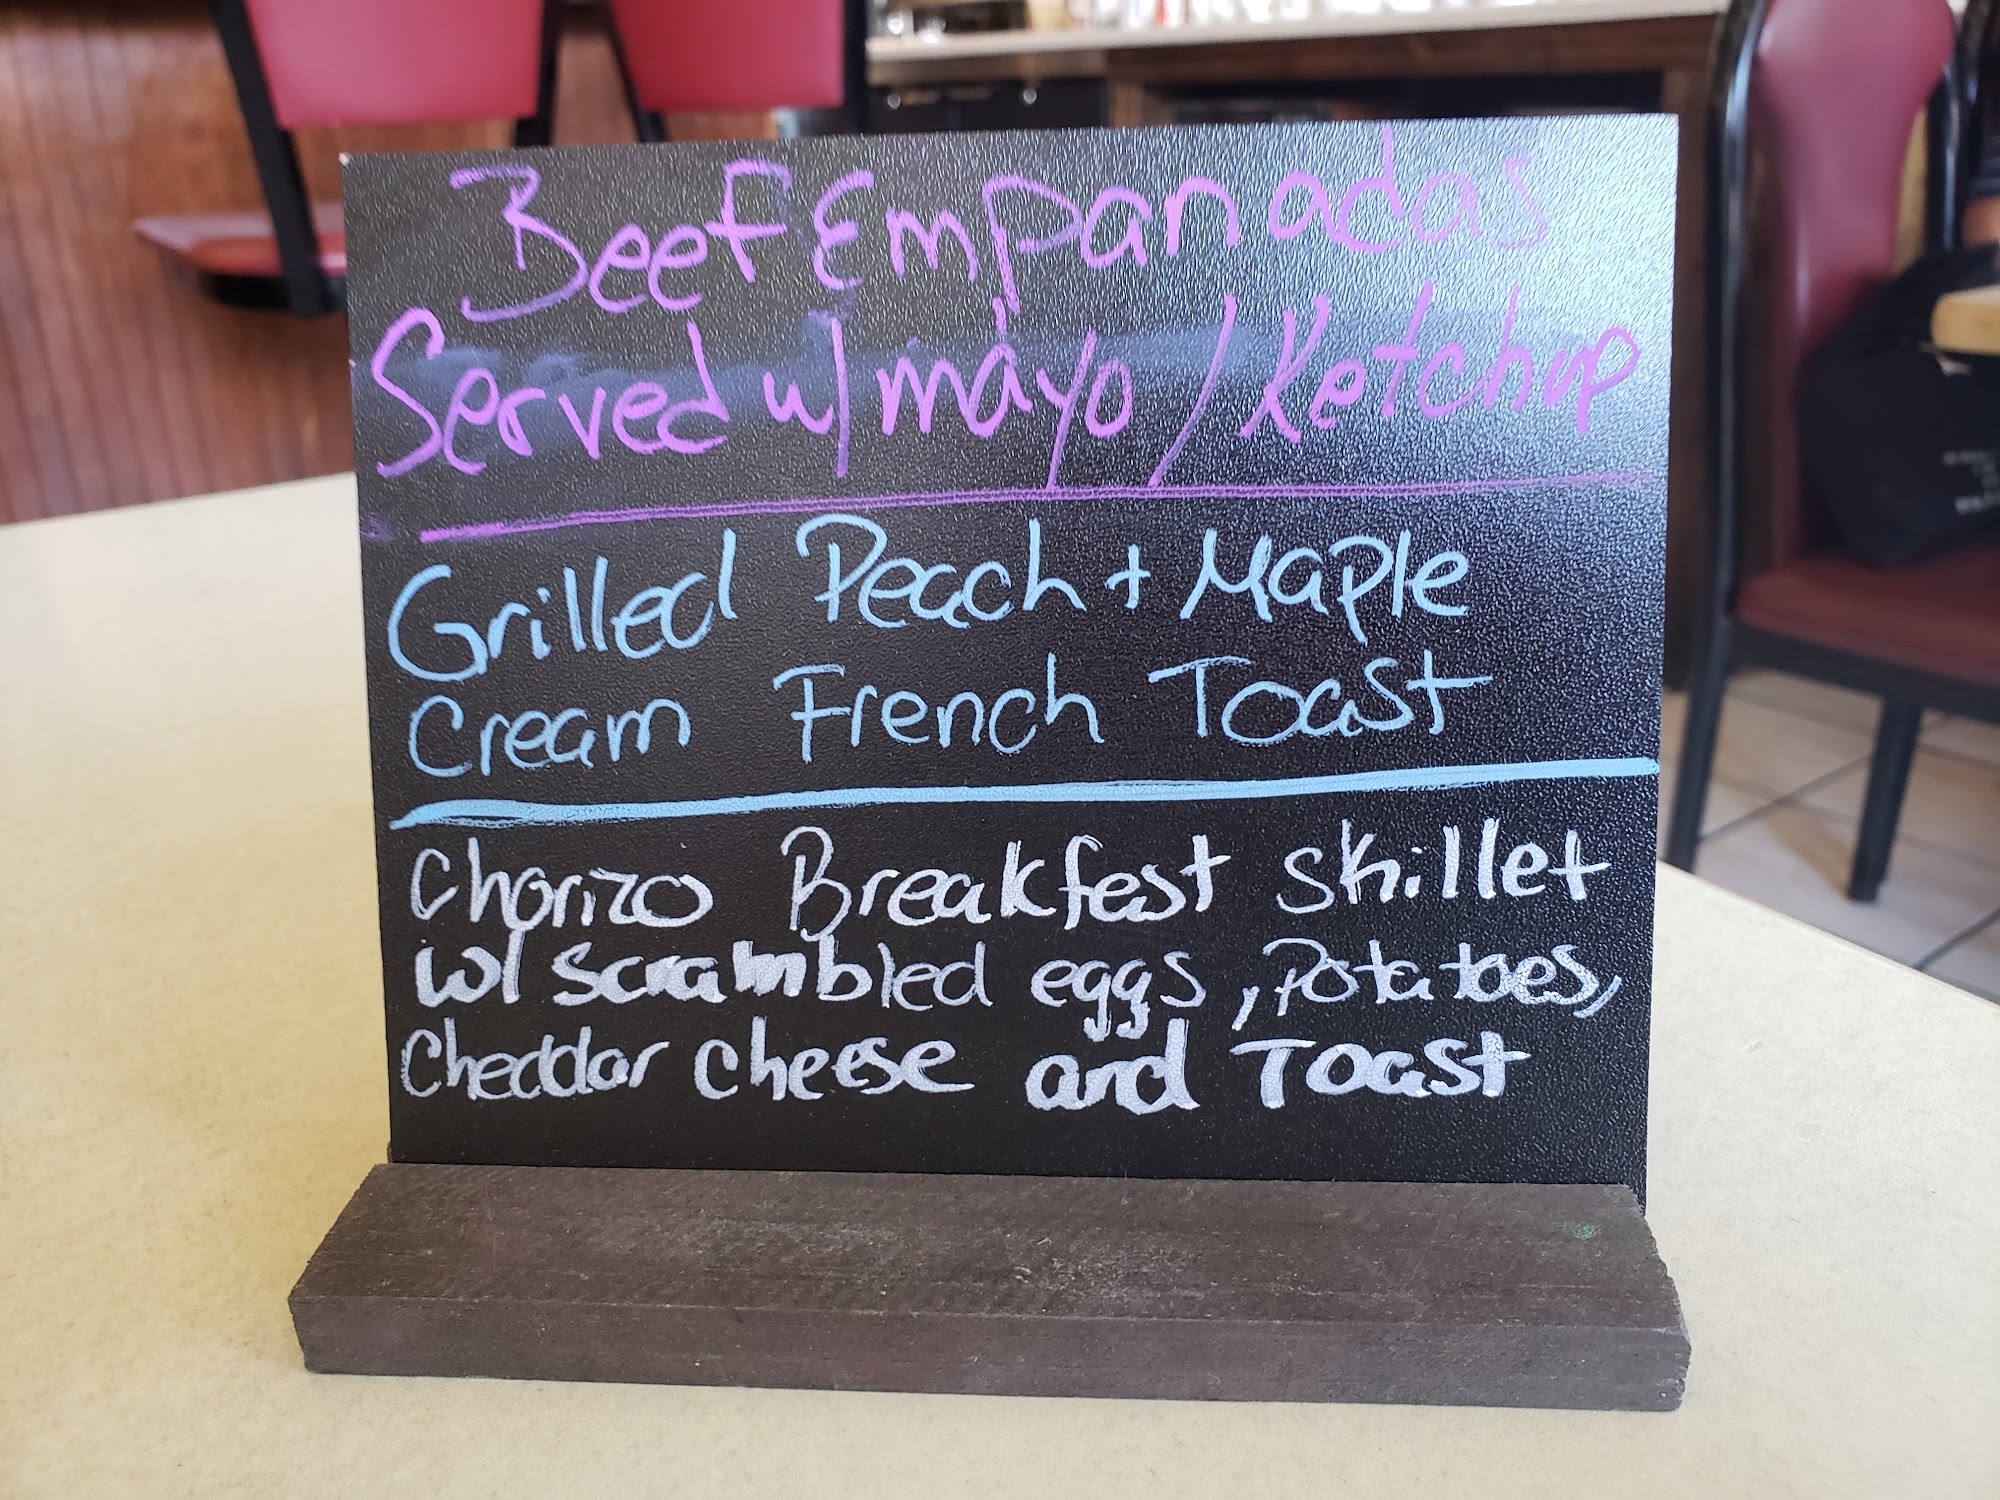 Beef Empanadas
Served w/ mayo / Ketchup
Grilled Peach + Maple
Cream French Toast
Chorizo Breakfest skillet
w/ scrambled eggs, Potatoes,
Cheddar cheese and Toast